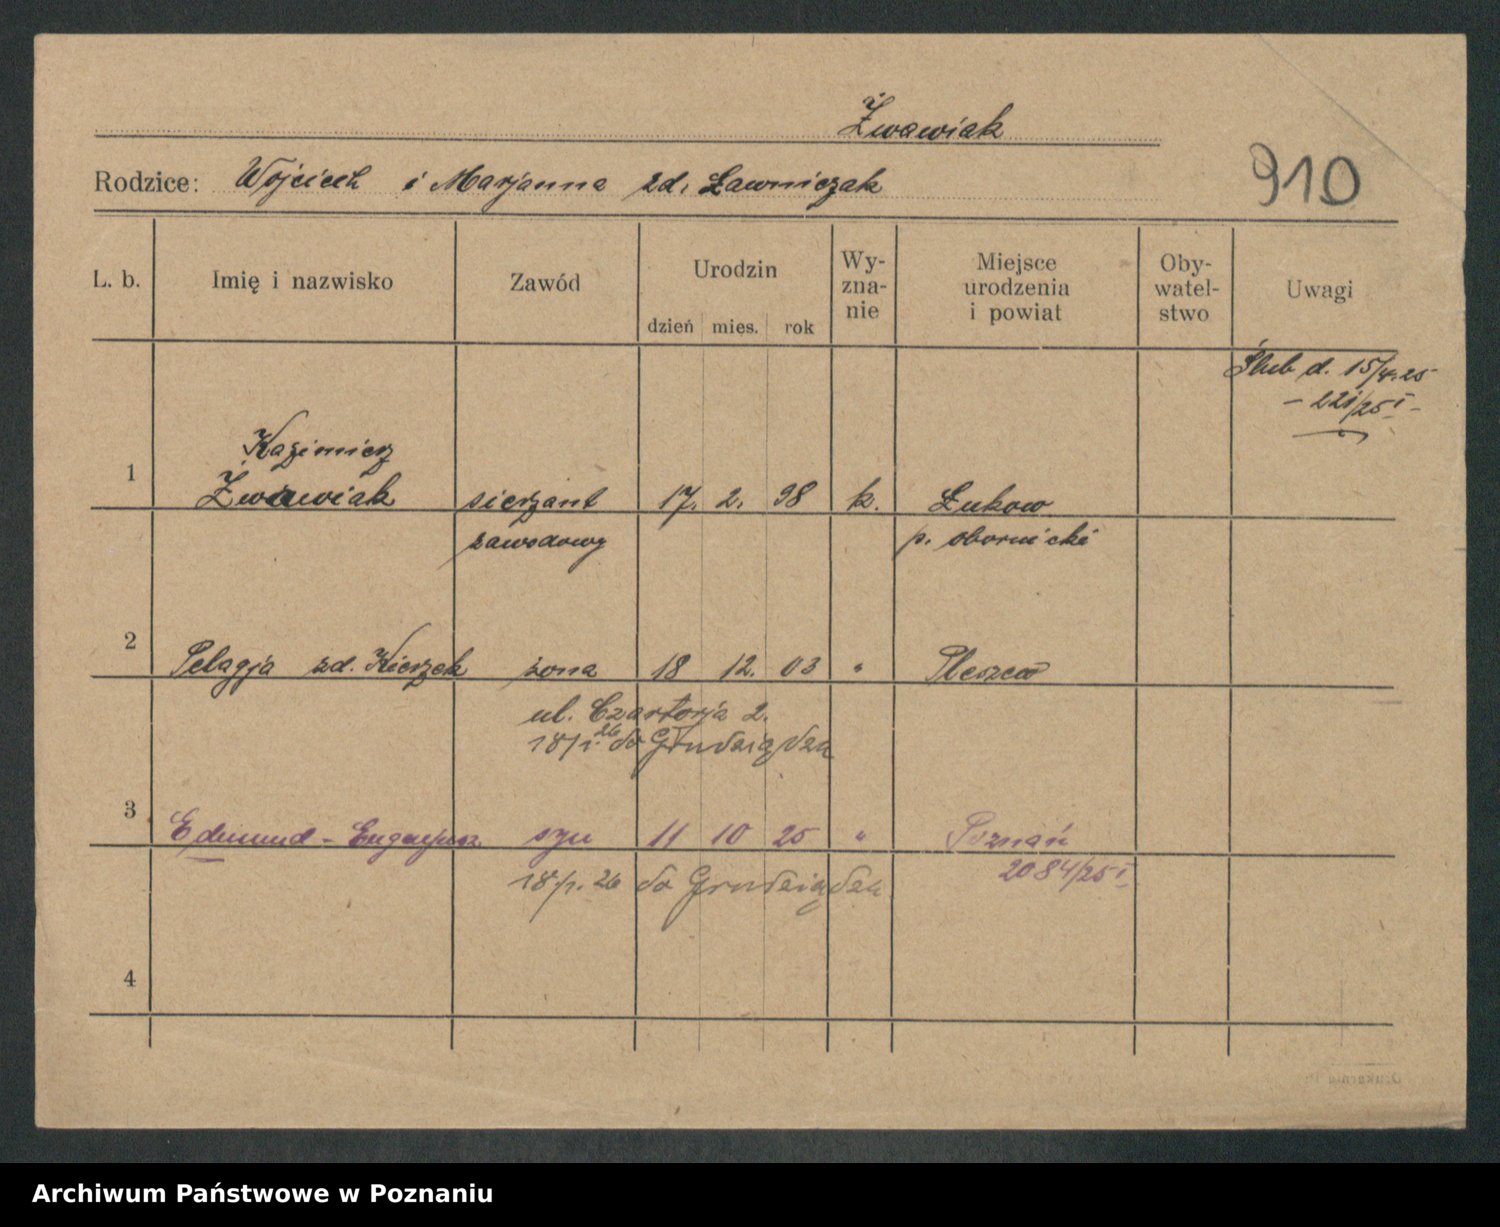 Żwawiak
Rodzice: Wojciech i Marjanna zd. Ławniczak
910
L. b. Imię i nazwisko Zawód Urodzin dzień mies. rok Wy-zna-nie Miejsce urodzenia i powiat Oby-watel-stwo Uwagi
Ślub d. 15/4.25
- 221/25 I -
1 Kazimierz
Żwawiak sierżant 17. 2. 98 k. Łukow
zawodowy p. obornicki
2 Pelagja zd. Kierzek żona 18 12. 03 " Pleszew
ul. Czartorja 2.
18/1. 26 do Grudziądza
3 Edmund - Eugenjusz syn 11 10 25 " Poznań
2084/25 I
18/1. 26 do Grudziądza
4
Archiwum Państwowe w Poznaniu